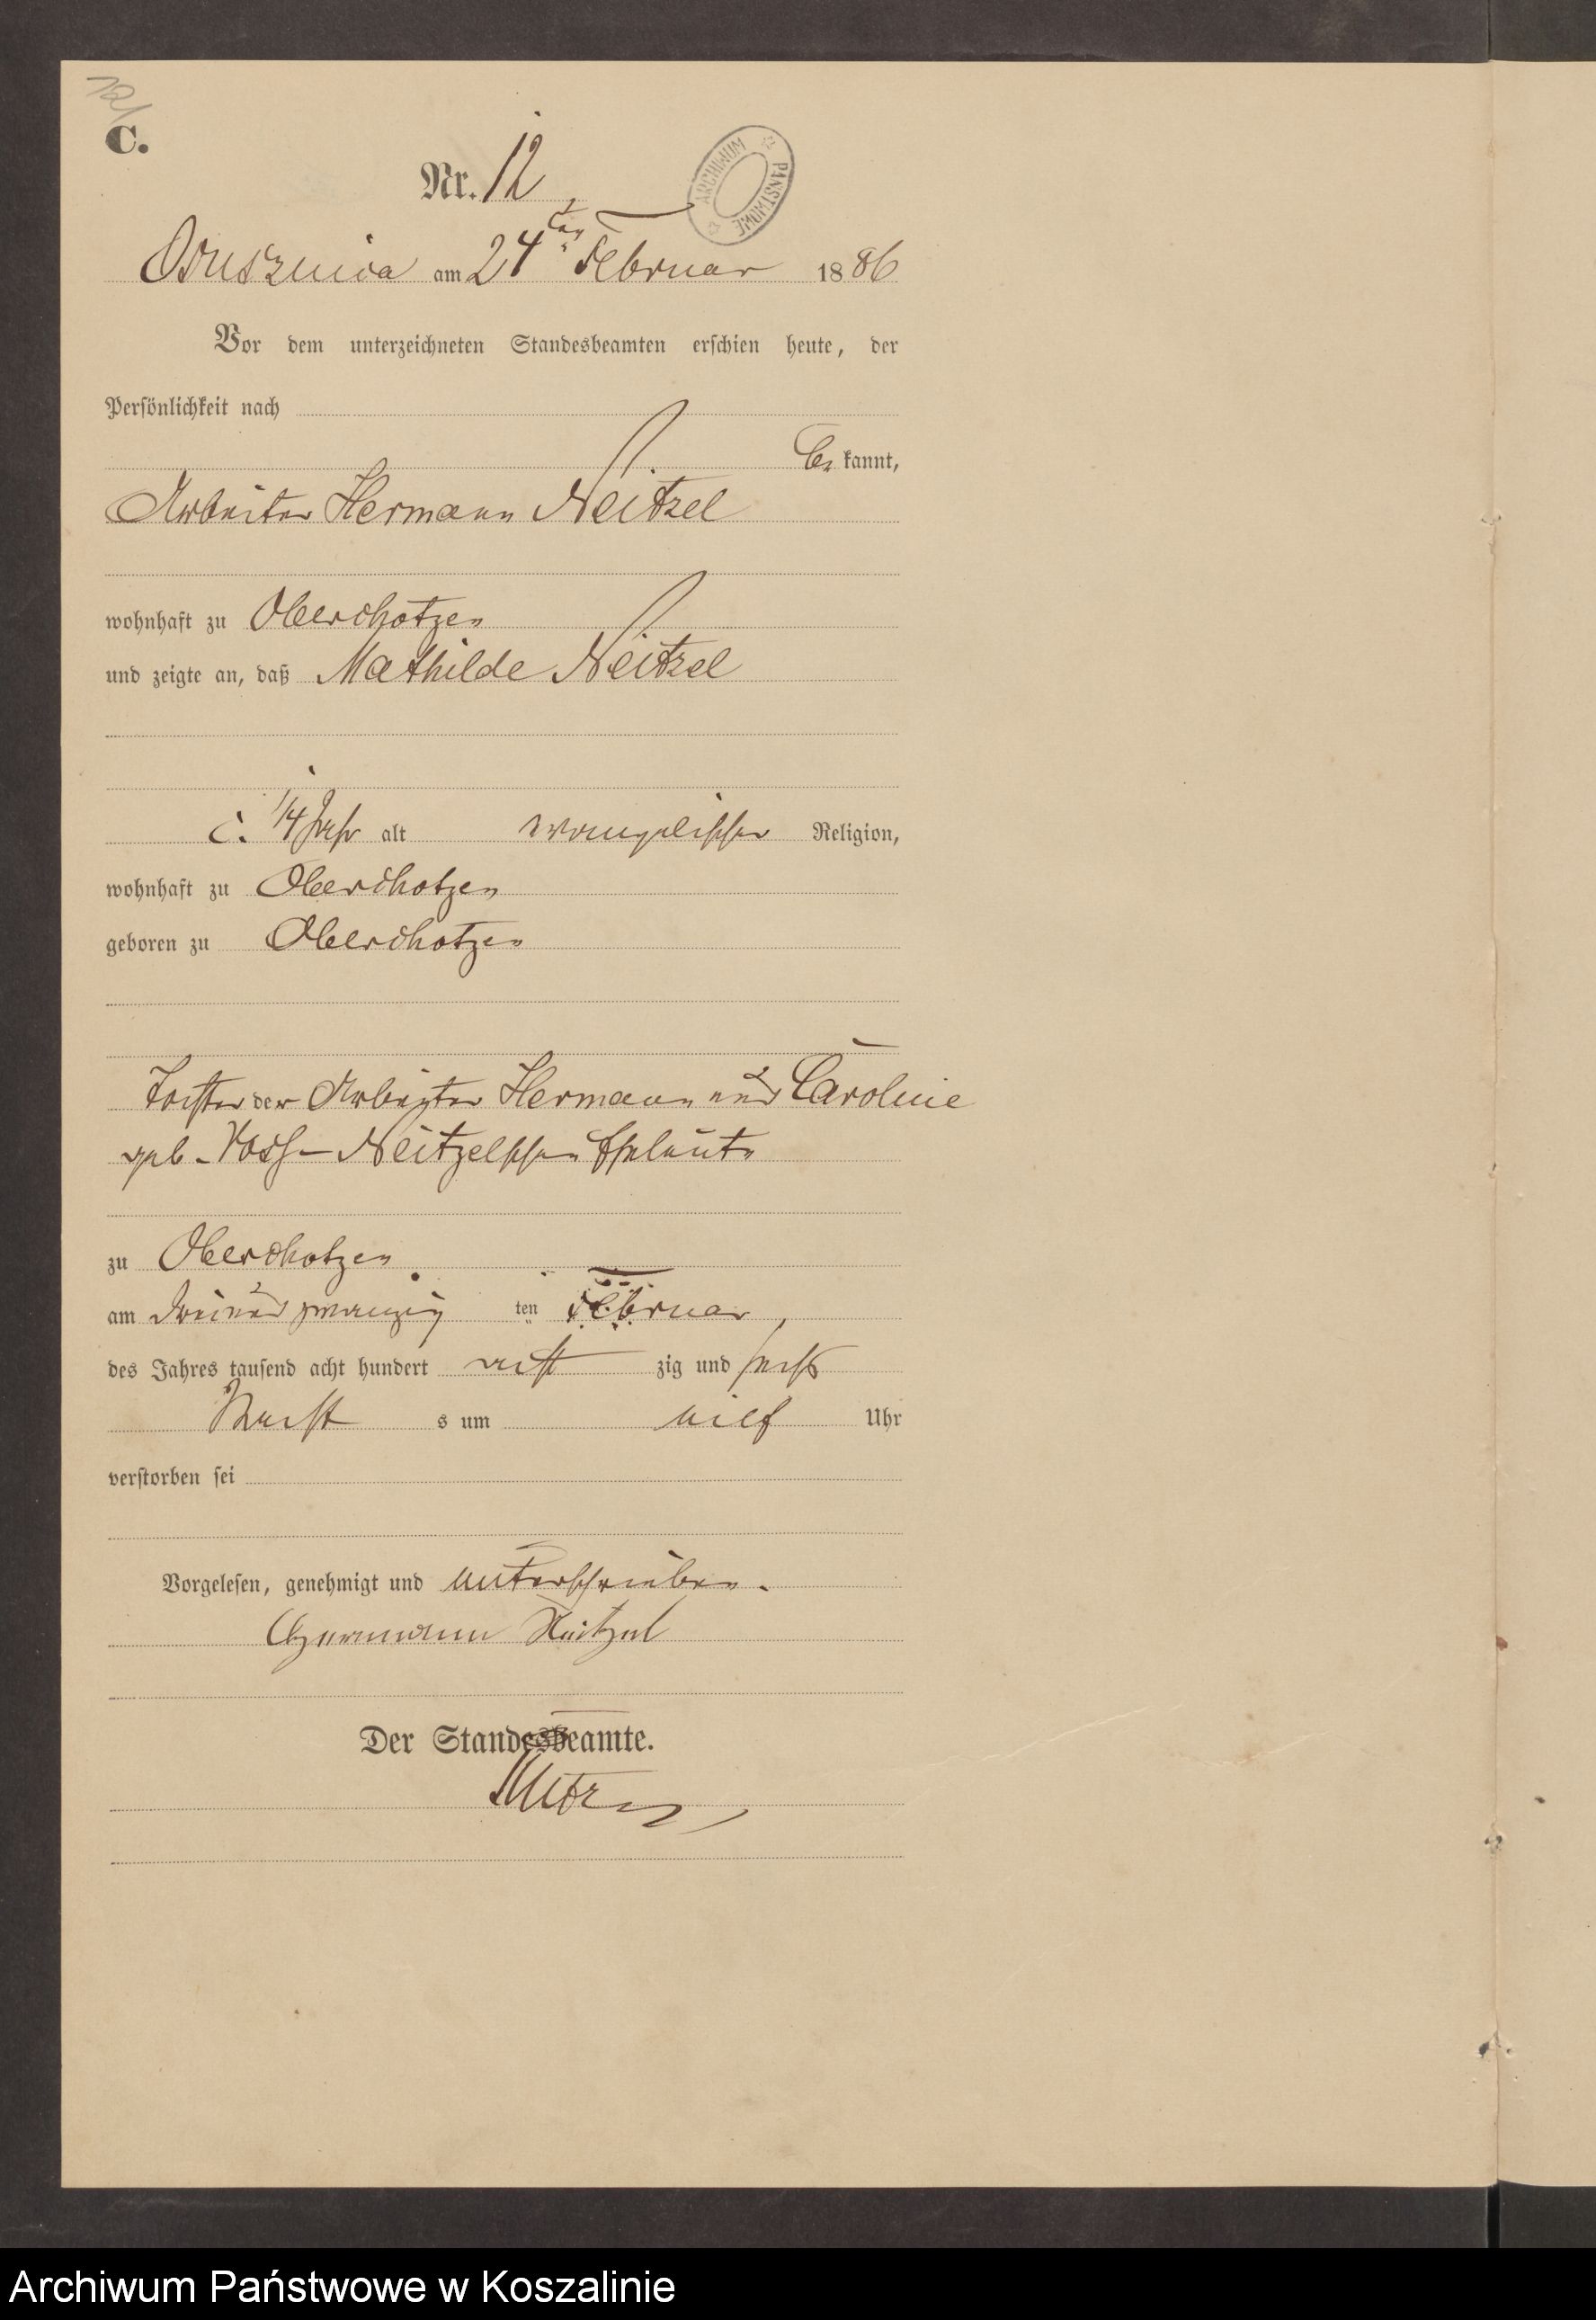 C.
Nr. 12
Osusznica am 24ten Februar 1886
Vor dem unterzeichneten Standesbeamten erschien heute, der
Persönlichkeit nach
be kannt,
Arbeiter Hermann Neitzel
wohnhaft zu Oberchotzen
und zeigte an, daß Mathilde Neitzel
c. 1/4 Jahr alt evangelischer Religion,
wohnhaft zu Oberchotzen
geboren zu Oberchotzen
Tochter der Arbeiter Hermann und Caroline
geb. Voss- Neitzelschen Eheleute
zu Oberchotzen
am dreiundzwanzig ten Februar
des Jahres tausend acht hundert acht zig und sechs
Nacht s um eilf Uhr
verstorben sei
Vorgelesen, genehmigt und unterschrieben.
Hermann Neitzel
Der Standesbeamte.
ARCHIWUM PAŃSTWOWE
Archiwum Państwowe w Koszalinie